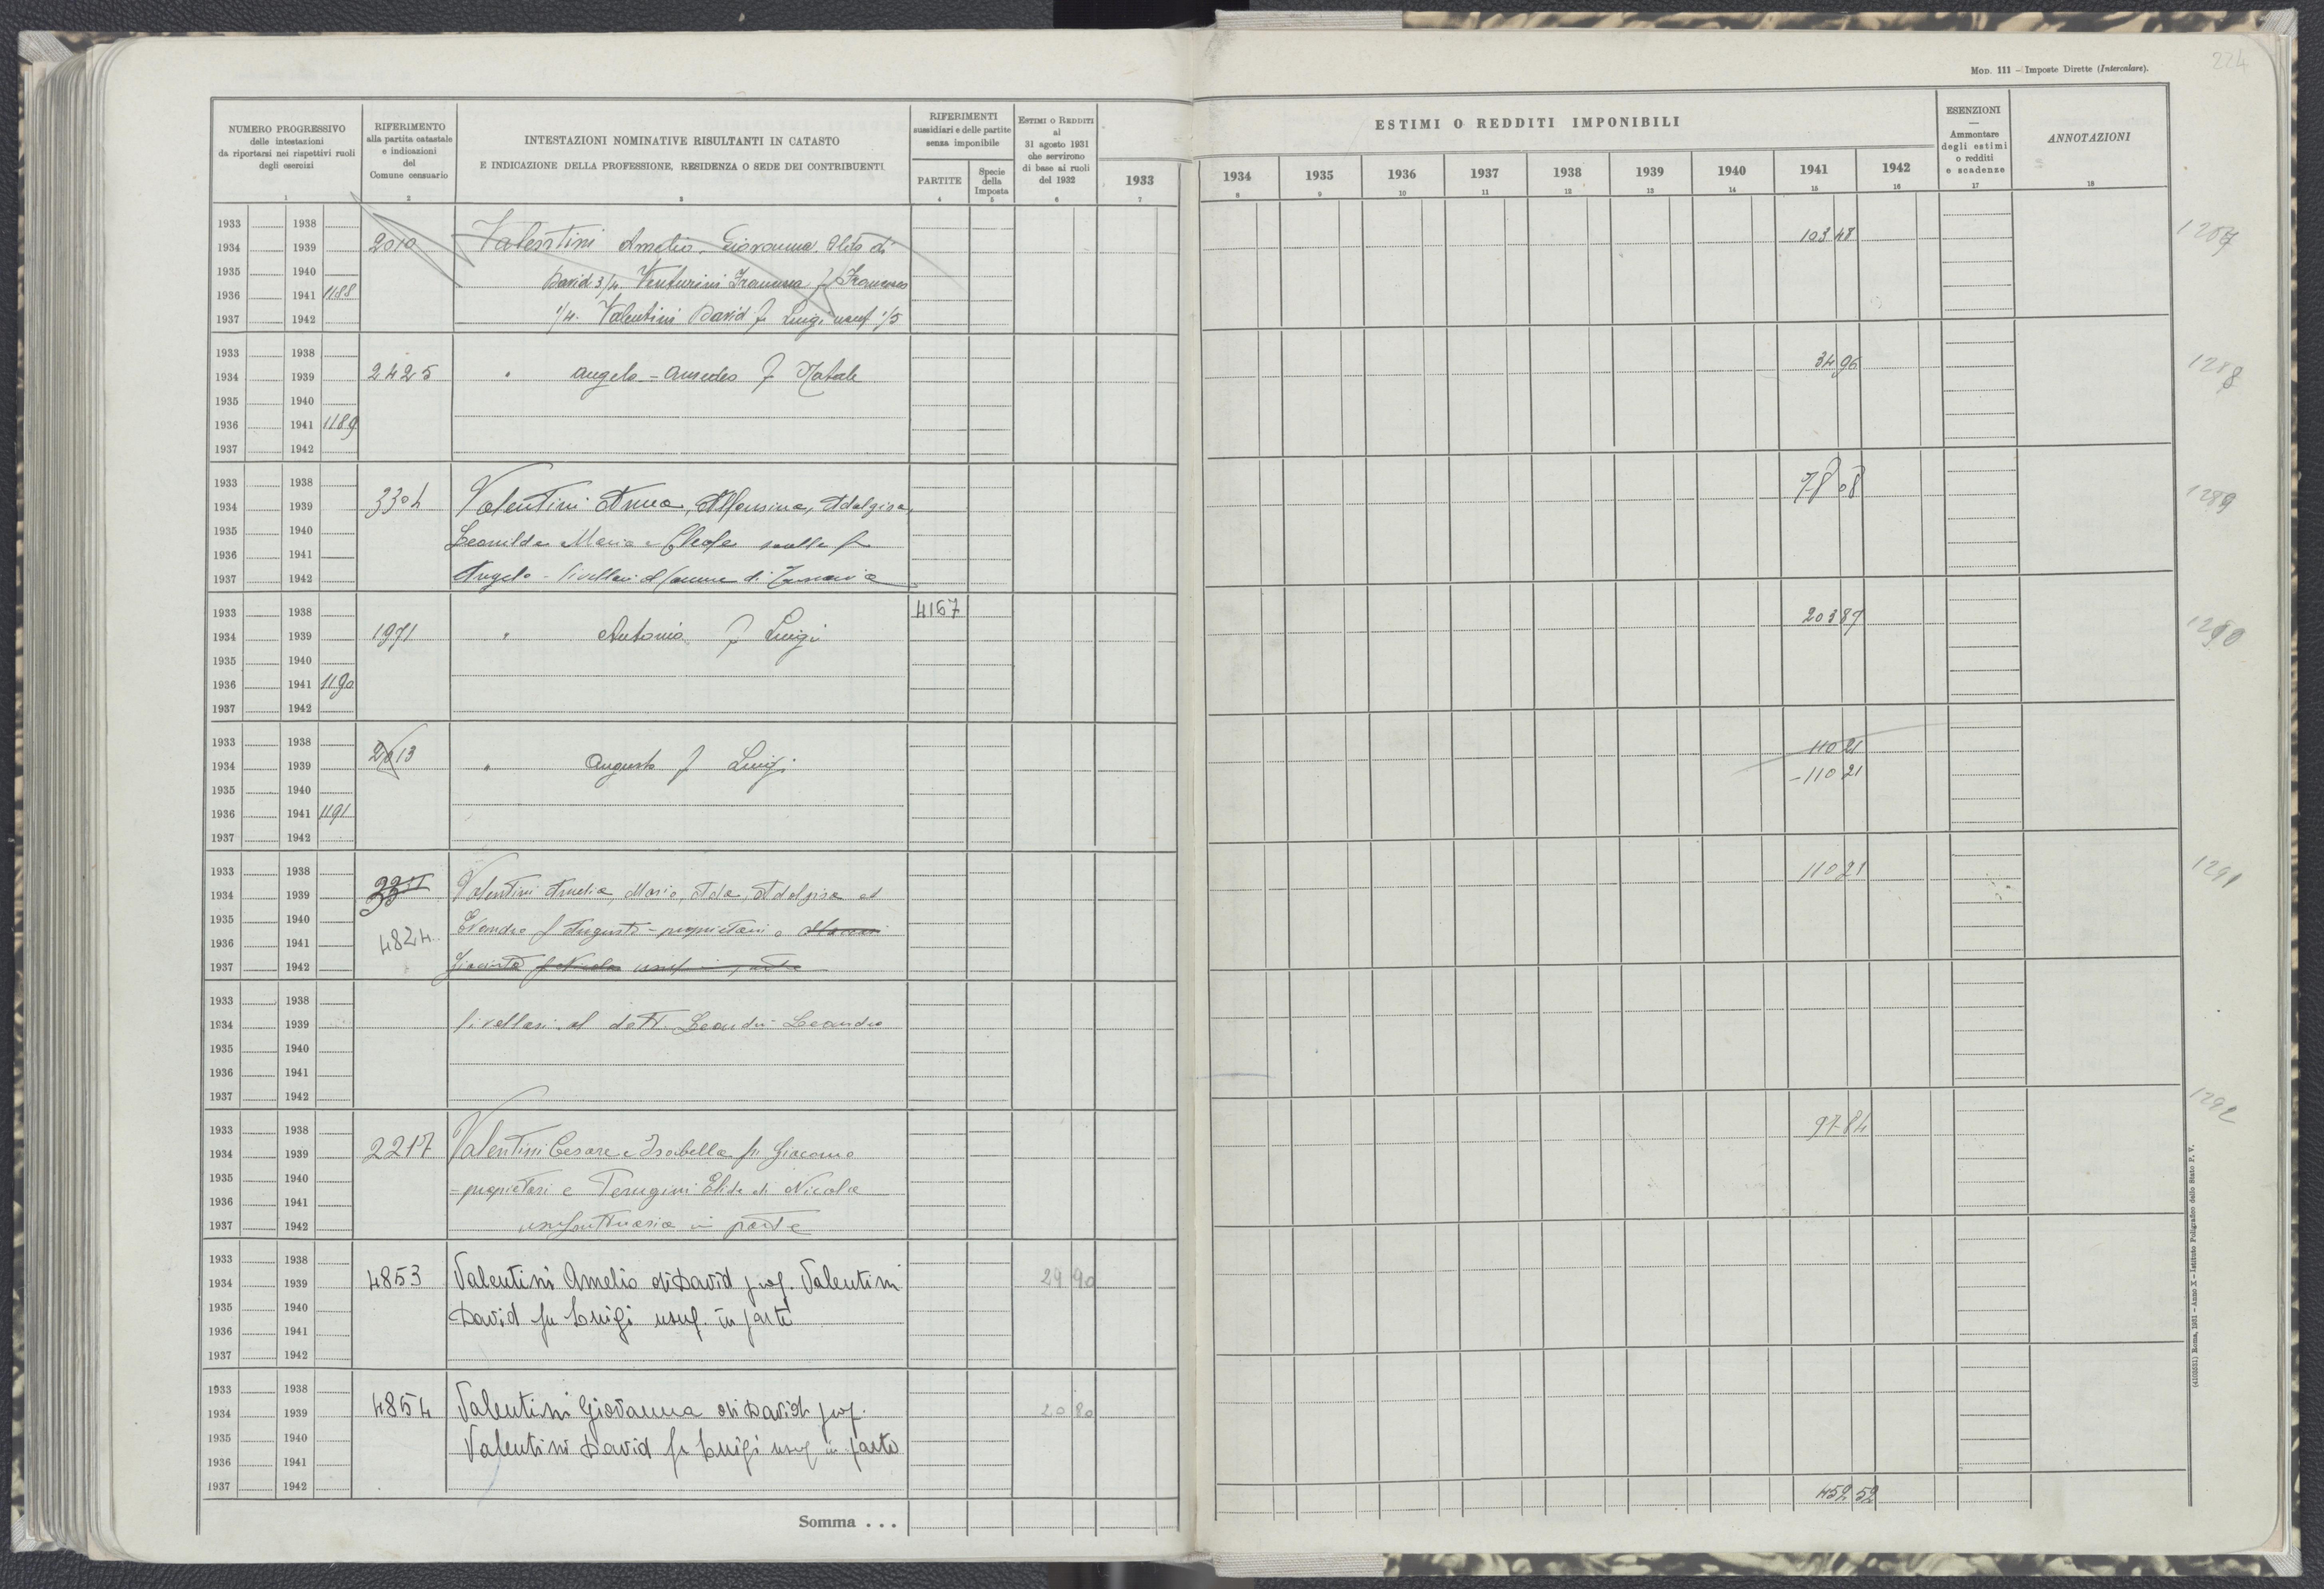 224
MOD. 111 – Imposte Dirette (Intercalare).
NUMERO PROGRESSIVO
delle intestazioni
da riportarsi nei rispettivi ruoli
degli esercizi
RIFERIMENTO
alla partita catastale
e indicazioni
del
Comune censuario
INTESTAZIONI NOMINATIVE RISULTANTI IN CATASTO
E INDICAZIONE DELLA PROFESSIONE, RESIDENZA O SEDE DEI CONTRIBUENTI
RIFERIMENTI
sussidiari e delle partite
senza imponibile
PARTITE
Specie
della
Imposta
ESTIMI O REDDITI
al
31 agosto 1931
che servirono
di base ai ruoli
del 1932
ESTIMI O REDDITI IMPONIBILI
1933 1934 1935 1936 1937 1938 1939 1940 1941 1942
ESENZIONI
—
Ammontare
degli estimi
o redditi
e scadenze
ANNOTAZIONI
1 2 3 4 5 6 7 8 9 10 11 12 13 14 15 16 17 18
1933 1938
1934 1939 2010 Valentini Amelio - Giovanna, Elita di 103 48
1935 1940 David 3/4 Venturini Francesco
1936 1941 1188
1937 1942 1/4. Valentini David f Luigi usuf 1/5
1933 1938
1934 1939 2425 " Angelo - Amedeo f Natale 34 96 1288
1935 1940
1936 1941 1189
1937 1942
1933 1938
1934 1939 3304 Valentini Anna, Alfonsina, Adalgisa, 78 08 1289
1935 1940 Leonilda Maria e Cleofe
1936 1941
1937 1942 Angelo - livellari al Comune di
1933 1938 4157
1934 1939 1971 " Antonio f Luigi 203 87 1290
1935 1940
1936 1941 1190
1937 1942
1933 1938 110 21
1934 1939 2013 " Augusto f Luigi - 110 21
1935 1940
1936 1941 1191
1937 1942
1933 1938
1934 1939 Valentini Amelia, Maria, Ada, Adalgisa ed 110 21 1291
1935 1940
1936 1941 4824 Evandro f Augusto - proprietari e
1937 1942 Giacinta
1933 1938
1934 1939 livellari al dott. Leandri Leandro
1935 1940
1936 1941
1937 1942
1933 1938
1934 1939 2217 Valentini Cesare e Isabella fu Giacomo 97 84 1292
1935 1940 - proprietari e Perugini Elide di Nicola
1936 1941
1937 1942 usufruttuaria in parte
1933 1938
1934 1939 4853 Valentini Amelio di David prop. Valentini 29 90
1935 1940 David fu Luigi usuf. in parte
1936 1941
1937 1942
1933 1938
1934 1939 4854 Valentini Giovanna di David prop. 20 80
1935 1940 Valentini David fu Luigi usuf in parte
1936 1941
1937 1942
Somma . . . 452 52
(4103531) Roma, 1931 – Anno X – Istituto Poligrafico dello Stato P. V.